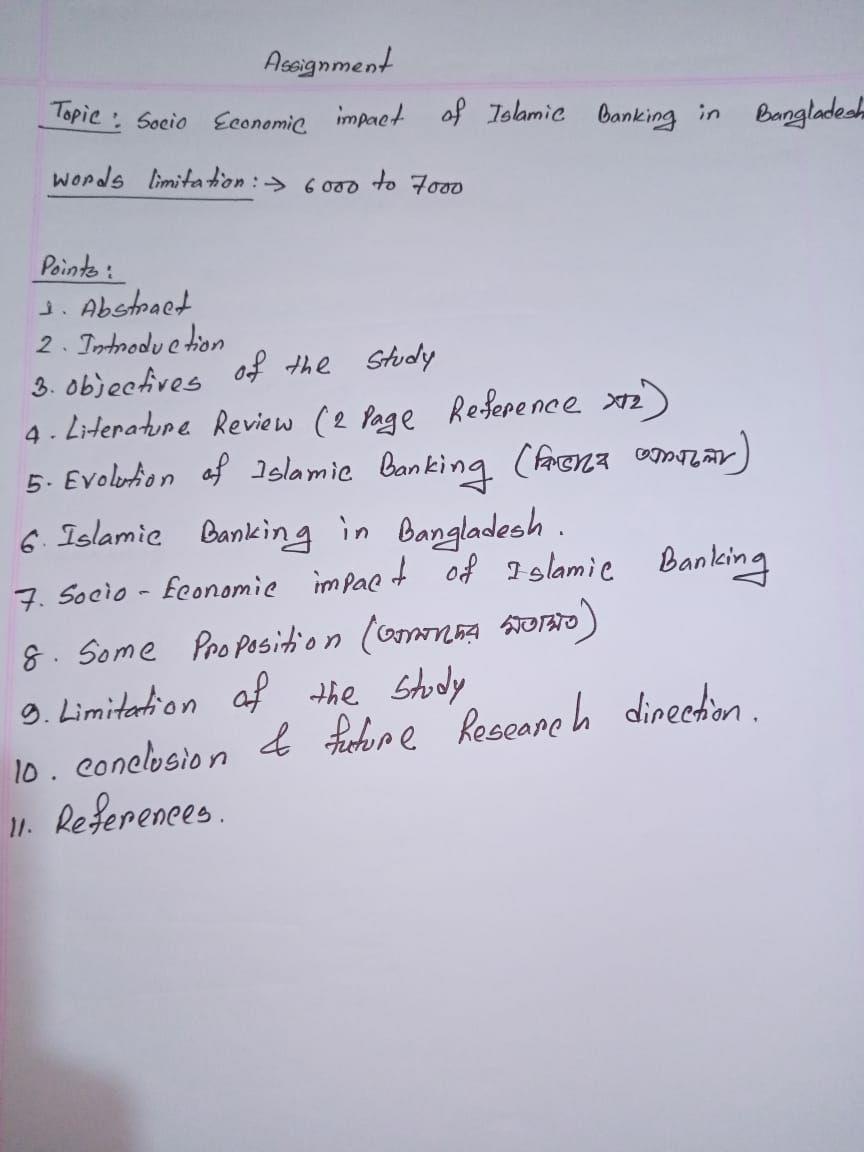 Assignment
Topic : Socio Economic impact of Islamic Banking in Bangladesh
Words limitation :→ 6000 to 7000
Points :
1. Abstract
2. Introduction
3. Objectives of the Study
4. Literature Review (2 Page Reference সহ)
5. Evolution of Islamic Banking (কিভাবে আসলো)
6. Islamic Banking in Bangladesh.
7. Socio - Economic impact of Islamic Banking
8. Some Proposition (আমাদের মতামত)
9. Limitation of the Study
10. Conclusion & future Research direction.
11. References.